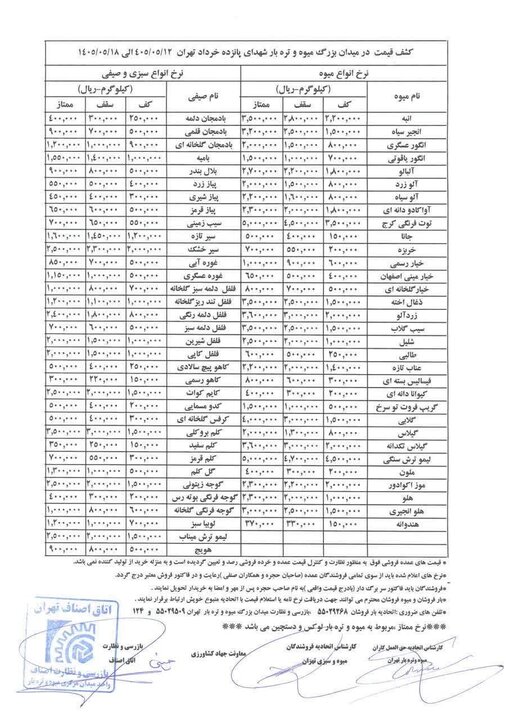 کشف قیمت در میدان بزرگ میوه و تره بار شهدای پانزده خرداد تهران ۴۰۵/۰۵/۱۲ الی ۱۴۰۵/۰۵/۱۸
نرخ انواع میوه نرخ انواع سبزی و صیفی
نام میوه (کیلوگرم-ریال) نام صیفی (کیلوگرم-ریال)
کف سقف ممتاز کف سقف ممتاز
انبه ۲,۲۰۰,۰۰۰ ۲,۸۰۰,۰۰۰ ۳,۵۰۰,۰۰۰ بادمجان دلمه ۲۵۰,۰۰۰ ۳۰۰,۰۰۰ ۴۰۰,۰۰۰
انجیر سیاه ۱,۵۰۰,۰۰۰ ۲,۵۰۰,۰۰۰ ۳,۲۰۰,۰۰۰ بادمجان قلمی ۵۰۰,۰۰۰ ۷۰۰,۰۰۰ ۹۰۰,۰۰۰
انگور عسگری ۸۰۰,۰۰۰ ۱,۵۰۰,۰۰۰ ۲,۰۰۰,۰۰۰ بادمجان گلخانه ای ۹۰۰,۰۰۰ ۱,۰۰۰,۰۰۰ ۱,۲۰۰,۰۰۰
انگور یاقوتی ۷۰۰,۰۰۰ ۱,۰۰۰,۰۰۰ ۱,۵۰۰,۰۰۰ بامیه ۱,۰۰۰,۰۰۰ ۱,۴۰۰,۰۰۰ ۱,۵۵۰,۰۰۰
آلبالو ۱,۸۰۰,۰۰۰ ۲,۲۰۰,۰۰۰ ۲,۷۰۰,۰۰۰ بلال بندر ۵۰۰,۰۰۰ ۸۰۰,۰۰۰ ۹۰۰,۰۰۰
آلو زرد ۸۰۰,۰۰۰ ۱,۵۰۰,۰۰۰ ۲,۰۰۰,۰۰۰ پیاز زرد ۴۰۰,۰۰۰ ۵۰۰,۰۰۰ ۵۵۰,۰۰۰
آلو سیاه ۸۰۰,۰۰۰ ۱,۵۰۰,۰۰۰ ۲,۰۰۰,۰۰۰ پیاز شیری ۳۰۰,۰۰۰ ۴۰۰,۰۰۰ ۴۵۰,۰۰۰
آواکادو دانه ای ۱,۸۰۰,۰۰۰ ۲,۰۰۰,۰۰۰ ۲,۳۰۰,۰۰۰ پیاز قرمز ۵۰۰,۰۰۰ ۶۰۰,۰۰۰ ۶۵۰,۰۰۰
توت فرنگی کرج ۳,۵۰۰,۰۰۰ ۴,۵۰۰,۰۰۰ ۵,۰۰۰,۰۰۰ سیب زمینی ۵۵۰,۰۰۰ ۶۵۰,۰۰۰ ۷۰۰,۰۰۰
جانا ۱۵۰,۰۰۰ ۴۰۰,۰۰۰ ۵۰۰,۰۰۰ سیر تازه ۱,۲۰۰,۰۰۰ ۱,۴۵۰,۰۰۰ ۱,۶۰۰,۰۰۰
خربزه ۲۰۰,۰۰۰ ۵۵۰,۰۰۰ ۷۰۰,۰۰۰ سیر خشک ۲,۰۰۰,۰۰۰ ۲,۳۰۰,۰۰۰ ۲,۵۰۰,۰۰۰
خیار رسمی ۶۰۰,۰۰۰ ۹۰۰,۰۰۰ ۱,۰۰۰,۰۰۰ غوره آبی ۵۰۰,۰۰۰ ۷۰۰,۰۰۰ ۸۵۰,۰۰۰
خیار مینی اصفهان ۴۰۰,۰۰۰ ۵۰۰,۰۰۰ ۶۵۰,۰۰۰ غوره عسگری ۵۰۰,۰۰۰ ۱,۰۰۰,۰۰۰ ۱,۱۵۰,۰۰۰
خیارگلخانه ای ۵۰۰,۰۰۰ ۷۰۰,۰۰۰ ۸۰۰,۰۰۰ فلفل دلمه سبز گلخانه ۷۰۰,۰۰۰ ۸۰۰,۰۰۰ ۱,۰۰۰,۰۰۰
ذغال اخته ۱,۵۰۰,۰۰۰ ۲,۵۰۰,۰۰۰ ۳,۵۰۰,۰۰۰ فلفل تند ریز گلخانه ۱,۰۰۰,۰۰۰ ۱,۱۰۰,۰۰۰ ۱,۲۰۰,۰۰۰
زردآلو ۲,۰۰۰,۰۰۰ ۳,۰۰۰,۰۰۰ ۳,۶۰۰,۰۰۰ فلفل دلمه رنگی ۸۰۰,۰۰۰ ۱,۸۰۰,۰۰۰ ۲,۴۰۰,۰۰۰
سیب گلاب ۱,۵۰۰,۰۰۰ ۲,۵۰۰,۰۰۰ ۳,۵۰۰,۰۰۰ فلفل دلمه سبز ۵۰۰,۰۰۰ ۶۰۰,۰۰۰ ۷۰۰,۰۰۰
شلیل ۱,۰۰۰,۰۰۰ ۲,۰۰۰,۰۰۰ ۲,۵۰۰,۰۰۰ فلفل شیرین ۱,۰۰۰,۰۰۰ ۱,۵۰۰,۰۰۰ ۲,۰۰۰,۰۰۰
طالبی ۲۵۰,۰۰۰ ۵۰۰,۰۰۰ ۶۰۰,۰۰۰ فلفل کاپی ۱,۰۰۰,۰۰۰ ۱,۵۰۰,۰۰۰ ۲,۰۰۰,۰۰۰
عناب تازه ۱,۴۰۰,۰۰۰ ۲,۰۰۰,۰۰۰ ۲,۲۰۰,۰۰۰ کاهو پیچ سالادی ۲۵۰,۰۰۰ ۴۰۰,۰۰۰ ۵۰۰,۰۰۰
فیسالیس بسته ای ۳۰۰,۰۰۰ ۶۰۰,۰۰۰ ۸۰۰,۰۰۰ کاهو رسمی ۱۵۰,۰۰۰ ۲۲۰,۰۰۰ ۳۰۰,۰۰۰
کیوانا دانه ای ۲۰۰,۰۰۰ ۳۰۰,۰۰۰ ۴۰۰,۰۰۰ کایم کوات ۱,۵۰۰,۰۰۰ ۲,۰۰۰,۰۰۰ ۲,۵۰۰,۰۰۰
گریپ فروت تو سرخ ۵۰۰,۰۰۰ ۱,۰۰۰,۰۰۰ ۱,۵۰۰,۰۰۰ کدو مسمایی ۲۰۰,۰۰۰ ۴۰۰,۰۰۰ ۵۰۰,۰۰۰
گلابی ۱,۵۰۰,۰۰۰ ۳,۰۰۰,۰۰۰ ۴,۰۰۰,۰۰۰ کرفس گلخانه ای ۳۰۰,۰۰۰ ۴۰۰,۰۰۰ ۵۰۰,۰۰۰
گیلاس ۸۰۰,۰۰۰ ۲,۰۰۰,۰۰۰ ۲,۵۰۰,۰۰۰ کلم بروکلی ۱,۵۰۰,۰۰۰ ۳,۰۰۰,۰۰۰ ۳,۵۰۰,۰۰۰
گیلاس تکدانه ۲,۰۰۰,۰۰۰ ۳,۰۰۰,۰۰۰ ۳,۶۰۰,۰۰۰ کلم سفید ۱۵۰,۰۰۰ ۲۵۰,۰۰۰ ۳۵۰,۰۰۰
لیمو ترش سنگی ۴,۵۰۰,۰۰۰ ۴,۷۰۰,۰۰۰ ۵,۰۰۰,۰۰۰ کلم قرمز ۴۰۰,۰۰۰ ۵۵۰,۰۰۰ ۷۰۰,۰۰۰
ملون ۲۰۰,۰۰۰ ۳۰۰,۰۰۰ ۴۰۰,۰۰۰ گل کلم ۵۰۰,۰۰۰ ۱,۰۰۰,۰۰۰ ۱,۳۰۰,۰۰۰
موز اکوادور ۲,۰۰۰,۰۰۰ ۲,۲۰۰,۰۰۰ ۲,۳۰۰,۰۰۰ گوجه زیتونی ۱,۵۰۰,۰۰۰ ۲,۰۰۰,۰۰۰ ۲,۵۰۰,۰۰۰
هلو ۱,۰۰۰,۰۰۰ ۲,۰۰۰,۰۰۰ ۲,۳۰۰,۰۰۰ گوجه فرنگی بوته رس ۲۰۰,۰۰۰ ۳۰۰,۰۰۰ ۴۰۰,۰۰۰
هلو انجیری ۱,۵۰۰,۰۰۰ ۲,۰۰۰,۰۰۰ ۳,۰۰۰,۰۰۰ گوجه فرنگی گلخانه ۶۰۰,۰۰۰ ۸۰۰,۰۰۰ ۱,۰۰۰,۰۰۰
هندوانه ۱۵۰,۰۰۰ ۳۳۰,۰۰۰ ۳۷۰,۰۰۰ لوبیا سبز ۸۰۰,۰۰۰ ۱,۰۰۰,۰۰۰ ۱,۲۰۰,۰۰۰
لیمو ترش میناب ۱,۵۰۰,۰۰۰ ۲,۰۰۰,۰۰۰ ۲,۵۰۰,۰۰۰
هویج ۵۰۰,۰۰۰ ۸۰۰,۰۰۰ ۹۰۰,۰۰۰
* قیمت های عمده فروشی فوق به منظور نظارت و کنترل قیمت عمده و خرده فروشی رصد و تعیین گردیده است و به منزله خرید از تولید کننده نمی باشد.
*نرخ های اعلام شده باید از سوی تمامی فروشندگان عمده (صاحبان حجره و همکاران صنفی) رعایت و در فاکتور فروش معتبر درج گردد.
*فروشندگان باید فاکتور سر برگ دار (بادرج قیمت واقعی) به نام صاحب حجره پس از مهر و امضا به خریدار تحویل نمایند.
*بار فروشان و میوه فروشان محترم می توانند جهت دریافت نرخ نامه یا استعلام قیمت با اتحادیه متبوع خویش ارتباط برقرار نمایند.
*تلفن های ضروری: اتحادیه بار فروشان ۵۵۰۲۹۲۶۸ بازرسی و نظارت میدان بزرگ میوه و تره بار تهران ۵۵۰۲۹۵۰۹ و ۱۲۴
***نرخ ممتاز ،مربوط به میوه و تره بار،لوکس و دستچین می باشد ***
کارشناس اتحادیه حق العمل کاران کارشناس اتحادیه فروشندگان معاونت جهاد کشاورزی بازرسی و نظارت
میوه و تره بار تهران میوه و سبزی تهران اتاق اصناف
اتاق اصناف تهران
بازرسی و نظارت اصناف
واحد میدان مرکزی میوه و تره بار